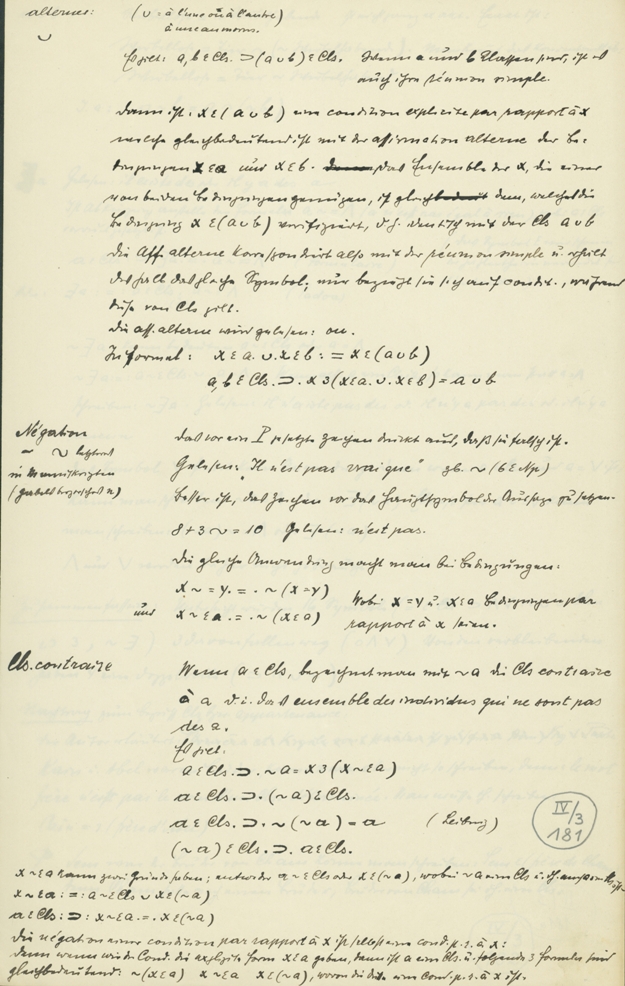 alterne: (∪ = à l'une ou à l'autre)
∪ à une au moins.
Es gilt: a, b ε Cls. ⊃ (a ∪ b) ε Cls. Wenn a und b Classen sind, ist es
auch ihre réunion simple.
Dann ist: x ε (a ∪ b) eine condition explicite par rapport à x
welche gleichbedeutend ist mit der affirmation alterne der Be-
dingungen x ε a und x ε b. das Ensemble der x, die einer
von beiden Bedingungen genügen, ist gleich dem, welches die
Bedingung x ε (a ∪ b) verifiziert, d.h. identisch mit der Cls a ∪ b
Die Aff. alterne korrespondirt also mit der réunion simple u. erhält
deshalb das gleiche Symbol; nur bezieht sie sich auf condit., während
diese von Cls gilt.
Die aff. alterne wird gelesen: ou.
In formal: x ε a. ∪. x ε b : = x ε (a ∪ b)
a, b ε Cls. ⊃. x ɜ (x ε a. ∪. x ε b) = a ∪ b
Négation das vor ein P gesetzte Zeichen drückt aus, daß sie falsch ist.
~ ∼ letzteres
in Manuskripten Gelesen: "Il n'est pas vrai que" zb. ~ (6 ε Np)
Besser ist, das Zeichen vor das Hauptsymbol der Aussage zu setzen.
8 + 3 ~ = 10 Gelesen: n'est pas.
Die gleiche Anwendung macht man bei Bedingungen:
x ~ = y. = . ~ (x = y)
Wobei x = y u. x ε a Bedingungen par
und x ~ ε a. = . ~ (x ε a)
rapport à x seien.
Cls. contraire Wenn a ε Cls, bezeichnet man mit ~ a die Cls contraire
à a d.i. das ensemble des individus qui ne sont pas
des a.
Es gilt:
a ε Cls. ⊃. ~ a = x ɜ (x ~ ε a)
a ε Cls. ⊃. (~ a) ε Cls.
a ε Cls. ⊃. ~ (~ a) = a (Leibniz)
(~ a) ε Cls. ⊃. a ε Cls.
IV/3
181
x ~ ε a kann zwei Gründe haben; entweder a ~ ε Cls oder x ε (~ a), wobei ~ a eine Cls u.
x ~ ε a : = : a ~ ε Cls ∪ x ε (~ a)
a ε Cls : ⊃ : x ~ ε a. = . x ε (~ a)
Die négation einer condition par rapport à x ist selbst eine cond. p. r. à x:
Denn wenn wir der Cond. die explizite form x ε a geben, dann ist a eine Cls u. folgende 3 formeln sind
gleichbedeutend: ~ (x ε a) x ~ ε a x ε (~ a), wovon die dritte eine Cond. p. r. à x ist.